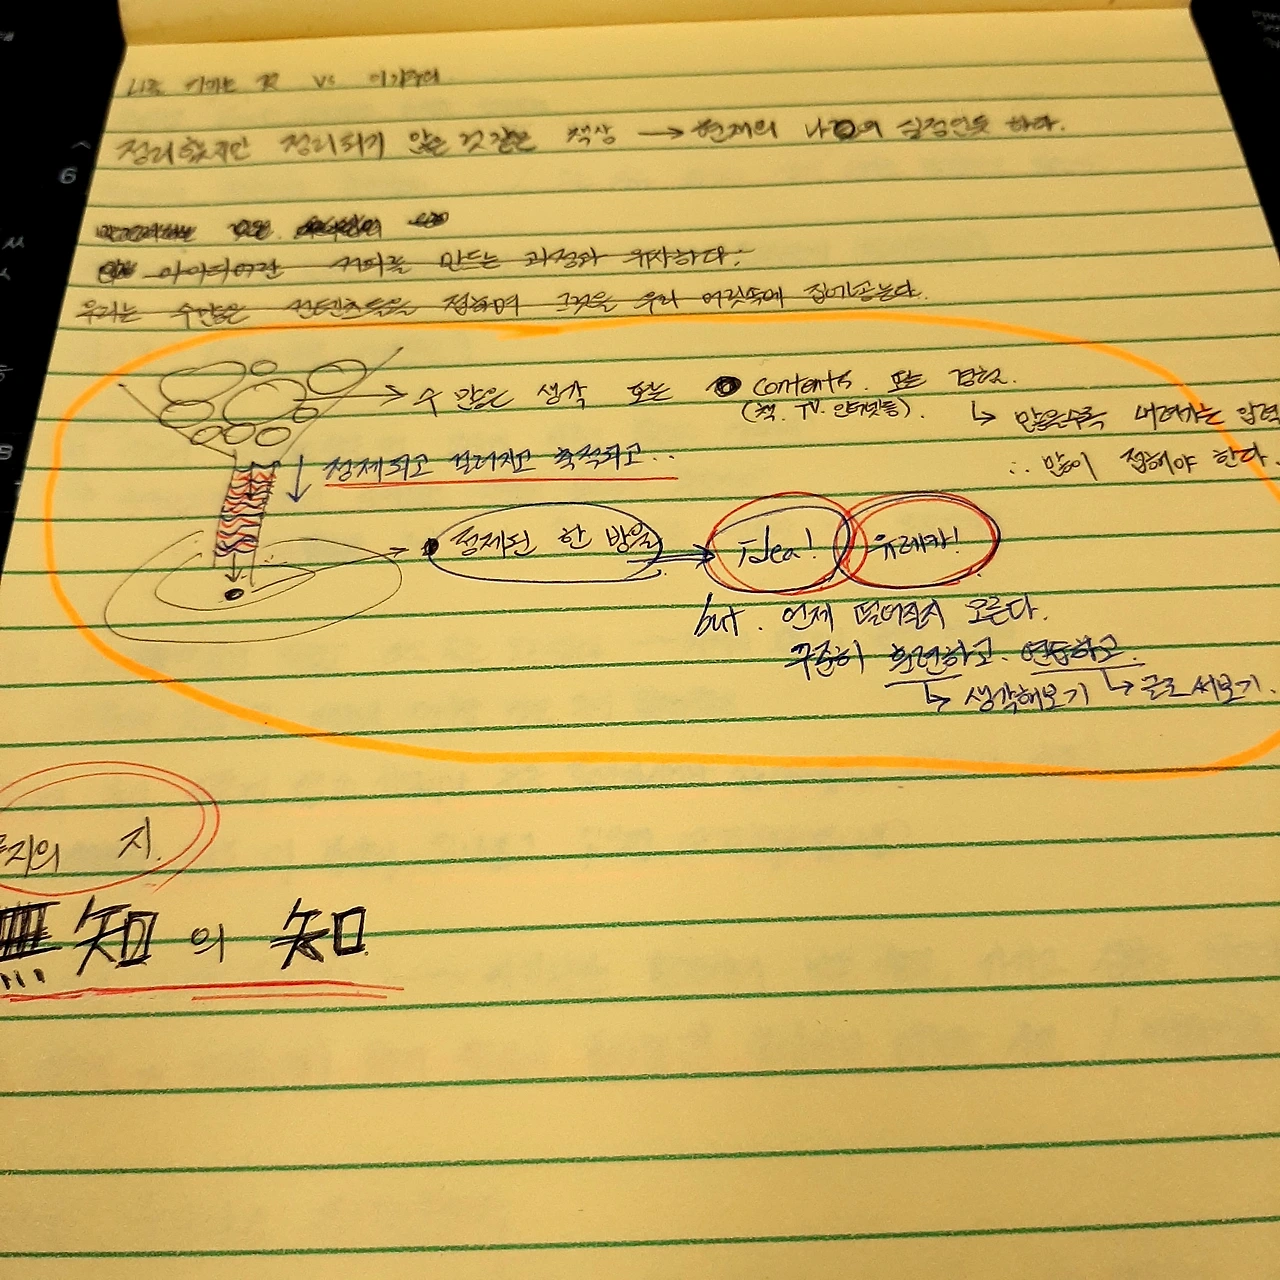 나를 이기는 것 vs 이기주의
정리했지만 정리되기 않은 것 같은 책상 → 현재의 나의 심정인듯 하다.
아이디어란 커피를 만드는 과정과 유사하다.
우리는 수많은 컨텐츠들을 접하며 그것을 우리 머릿속에 집어넣는다.
→ 수 많은 생각 또는 contents. 또는 경험.
(책. TV. 인터넷등).
↳ 많을수록 내려가는 압력
∴ 많이 접해야 한다.
↓ 정제되고 걸러지고 축적되고..
정제된 한 방울 → idea! 유레카!
but. 언제 떨어질지 모른다.
꾸준히 훈련하고. 연습하고.
↳ 생각해보기 ↳ 글로 써보기.
무지의 지.
無知의 知
6